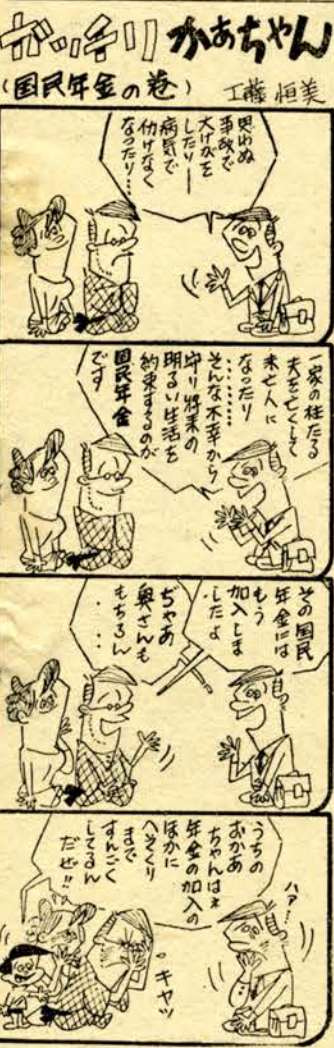 ガッチリかあちゃん
(国民年金の巻)
工藤恒美
思わぬ
事故で
大けがを
したり――
病気で
仂けなく
なったり…
一家の柱たる
夫を亡くして
未亡人に
なったり
………
そんな不幸から
守り将来の
明るい生活を
約束するのが
国民年金
です
その国民
年金には
もう
加入しま
したよ
ぢゃあ
奥さんも
もちろん
・・・
うちの
おかあ
ちゃんはネ
年金の加入の
ほかに
へそくり
まで
すんごく
してるん
だぜ!!
ハア…
キャッ